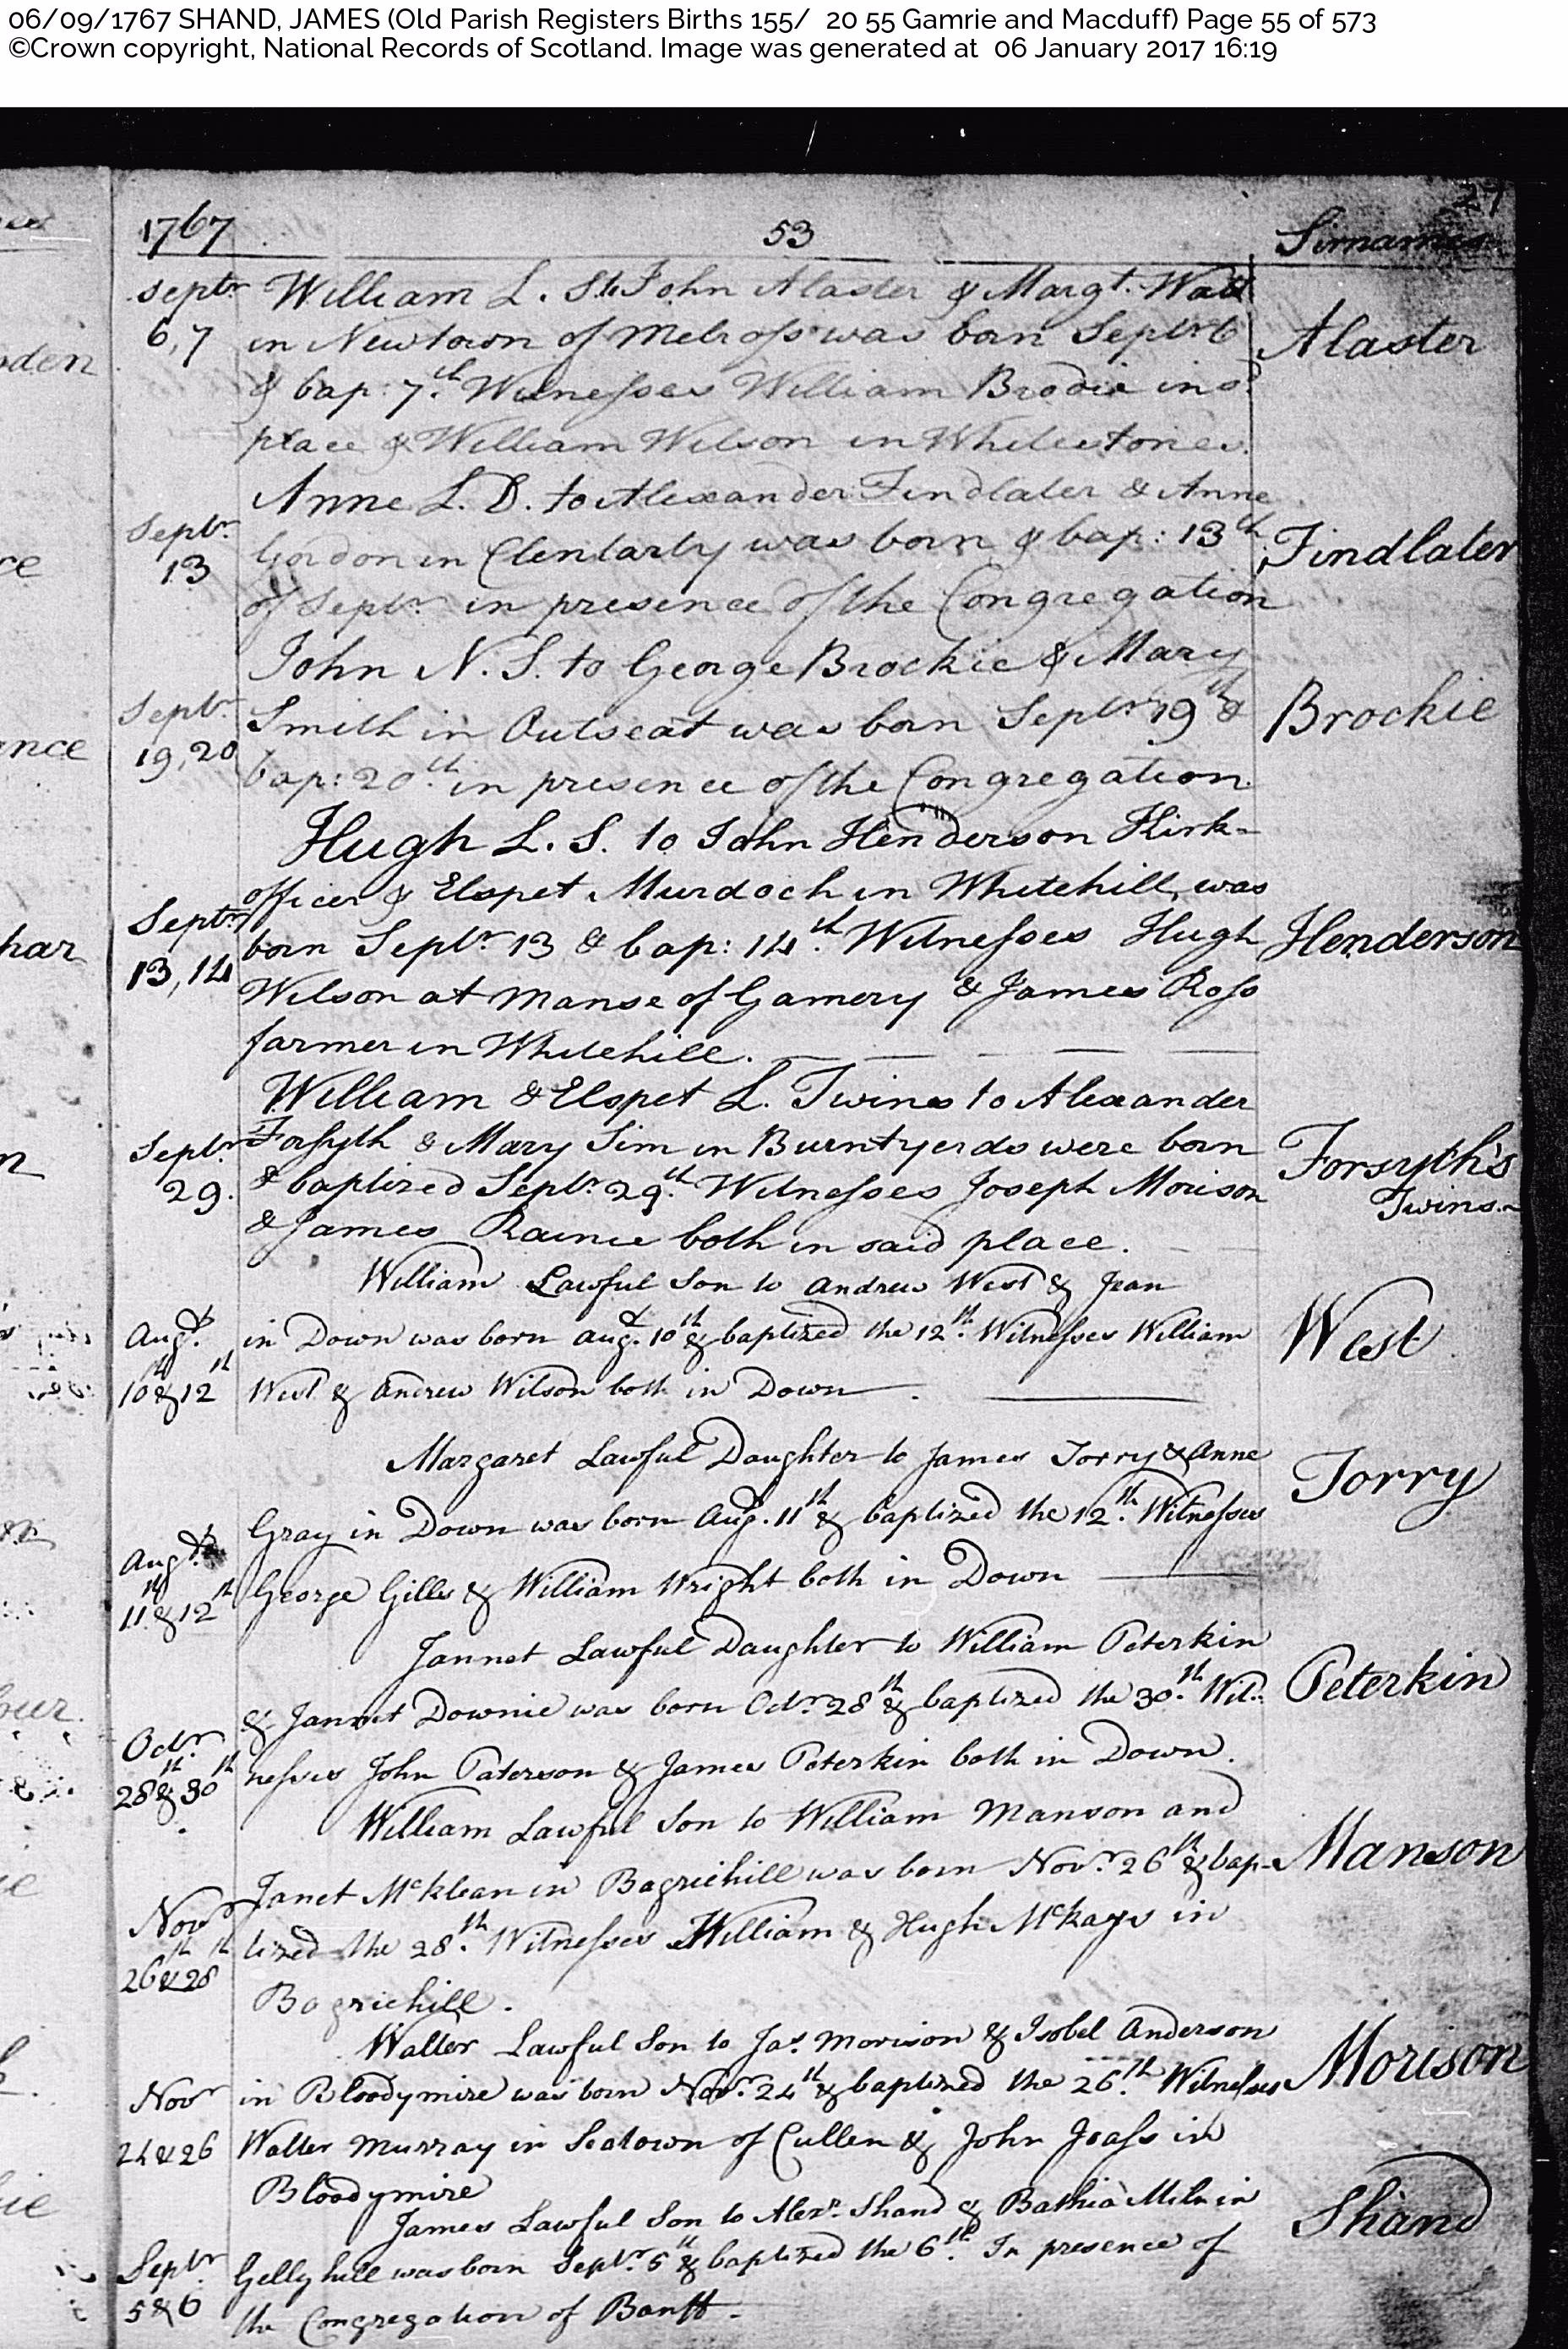 06/09/1767 SHAND, JAMES (Old Parish Registers Births 155/ 20 55 Gamrie and Macduff) Page 55 of 573
©Crown copyright, National Records of Scotland. Image was generated at 06 January 2017 16:19
27
1767 53 Sirnames
Septr William L. S. to John Alaster & Margt. Watt
6,7 in Newtown of Melross was born Septr 6 Alaster
& bap: 7th. Witnesses William Brodie in sd.
place & William Wilson in Whitestones.
Anne L. D. to Alexander Findlater & Anne
Septr. Gordon in Clentarty was born & bap: 13th Findlater
13 of Septr. in presence of the Congregation
John N. S. to George Brockie & Mary
Septr. Smith in Outseat was born Septr 19th & Brockie
19,20 bap: 20th. in presence of the Congregation.
Hugh L. S. to John Henderson Kirk-
officer & Elspet Murdoch in Whitehill, was
Septr. born Septr. 13 & bap: 14th. Witnesses Hugh Henderson
13,14 Wilson at Manse of Gamery & James Ross
farmer in Whitehill.
William & Elspet L. Twins to Alexander
Septr. Forsyth & Mary Sim in Burntyerds were born Forsyth's
29. & baptized Septr. 29th. Witnesses Joseph Morison Twins
& James Rainie both in said place.
William Lawful Son to Andrew West & Jean
Augt. in Down was born Augt. 10th & baptized the 12th. Witnesses William West
10th & 12th West & Andrew Wilson both in Down
Margaret Lawful Daughter to James Torry & Anne Torry
Gray in Down was born Augt. 11th & baptized the 12th. Witnesses
Augt. 11th & 12th George Gills & William Wright both in Down
Jannet Lawful Daughter to William Peterkin Peterkin
& Jannet Downie was born Octr. 28th & baptized the 30th. Wit:
Octr. 28th & 30th nesses John Paterson & James Peterkin both in Down.
William Lawful Son to William Manson and Manson
Janet McKlean in Bagriehill was born Novr. 26th & bap-
Novr 26th & 28th tized the 28th. Witnesses William & Hugh McKays in
Bagriehill.
Walter Lawful Son to Jas. Morison & Isobel Anderson Morison
Novr in Bloodymire was born Novr. 24th & baptized the 26th. Witnesses
24 & 26 Walter Murray in Seatown of Cullen & John Joass in
Bloodymire
James Lawful Son to Alexr. Shand & Bathia Miln in Shand
Septr. Gellyhill was born Septr. 5th & baptized the 6th. In presence of
5 & 6 the Congregation of Banff.